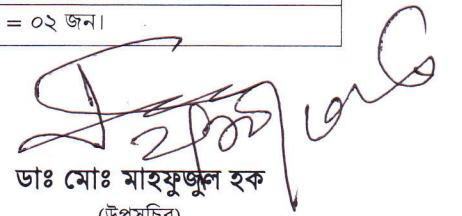 = ০২ জন।
ডাঃ মোঃ মাহফুজুল হক
(উপসচিব)